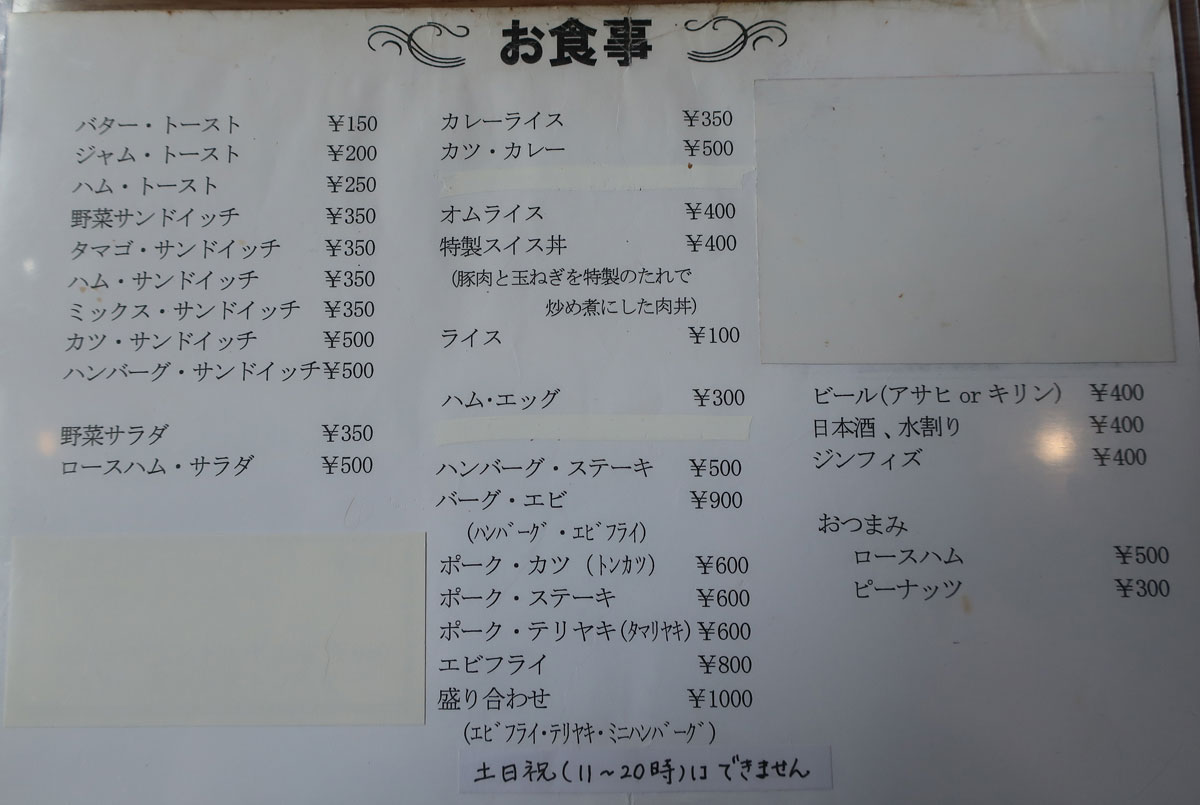 お食事
バター・トースト ¥150
ジャム・トースト ¥200
ハム・トースト ¥250
野菜サンドイッチ ¥350
タマゴ・サンドイッチ ¥350
ハム・サンドイッチ ¥350
ミックス・サンドイッチ ¥350
カツ・サンドイッチ ¥500
ハンバーグ・サンドイッチ¥500
野菜サラダ ¥350
ロースハム・サラダ ¥500
カレーライス ¥350
カツ・カレー ¥500
オムライス ¥400
特製スイス丼 ¥400
(豚肉と玉ねぎを特製のたれで
炒め煮にした肉丼)
ライス ¥100
ハム・エッグ ¥300
ハンバーグ・ステーキ ¥500
バーグ・エビ ¥900
(ﾊﾝﾊﾞｰｸﾞ・ｴﾋﾞﾌﾗｲ)
ポーク・カツ (ﾄﾝｶﾂ) ¥600
ポーク・ステーキ ¥600
ポーク・テリヤキ(ﾀﾏﾘﾔｷ) ¥600
エビフライ ¥800
盛り合わせ ¥1000
(ｴﾋﾞﾌﾗｲ・ﾃﾘﾔｷ・ﾐﾆﾊﾝﾊﾞｰｸﾞ)
土日祝(11〜20時)はできません
ビール(アサヒ or キリン) ¥400
日本酒、水割り ¥400
ジンフィズ ¥400
おつまみ
ロースハム ¥500
ピーナッツ ¥300